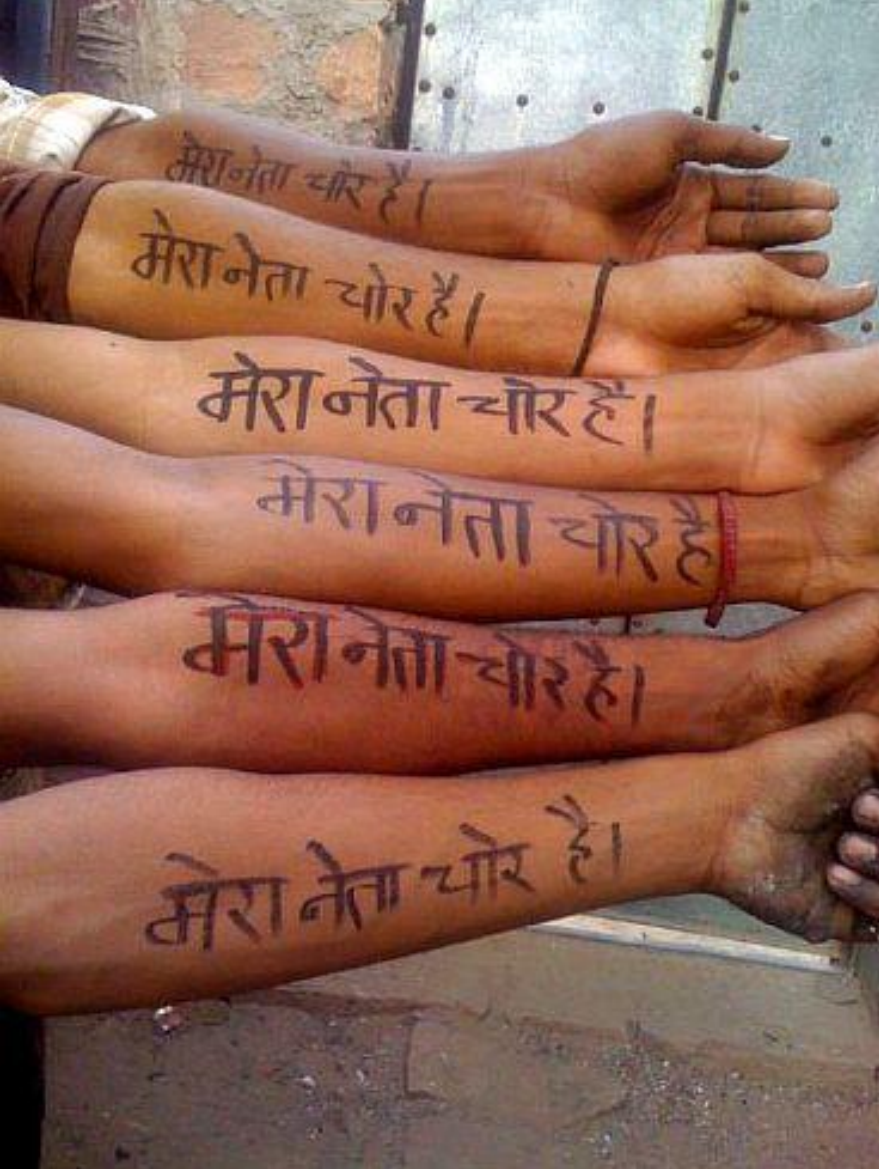 मेरा नेता चोर है।
मेरा नेता चोर है।
मेरा नेता चोर है।
मेरा नेता चोर है
मेरा नेता चोर है।
मेरा नेता चोर है।